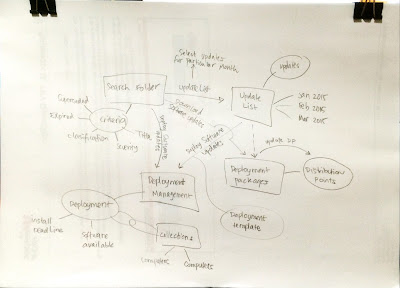 Select updates
for particular Month
updates
Search Folder
Update List
Update
List
Jan 2015
Feb 2015
Mar 2015
Superseded
Expired
Criteria
Classification
Title
Severity
Download
Software updates
Deploy Software
Updates
Deploy Software
updates
update DP
Deployment
Management
Deployment
packages
Distribution
Points
Deployment
Deployment
template
Install
Deadline
Software
available
Collections
Computers
Computers